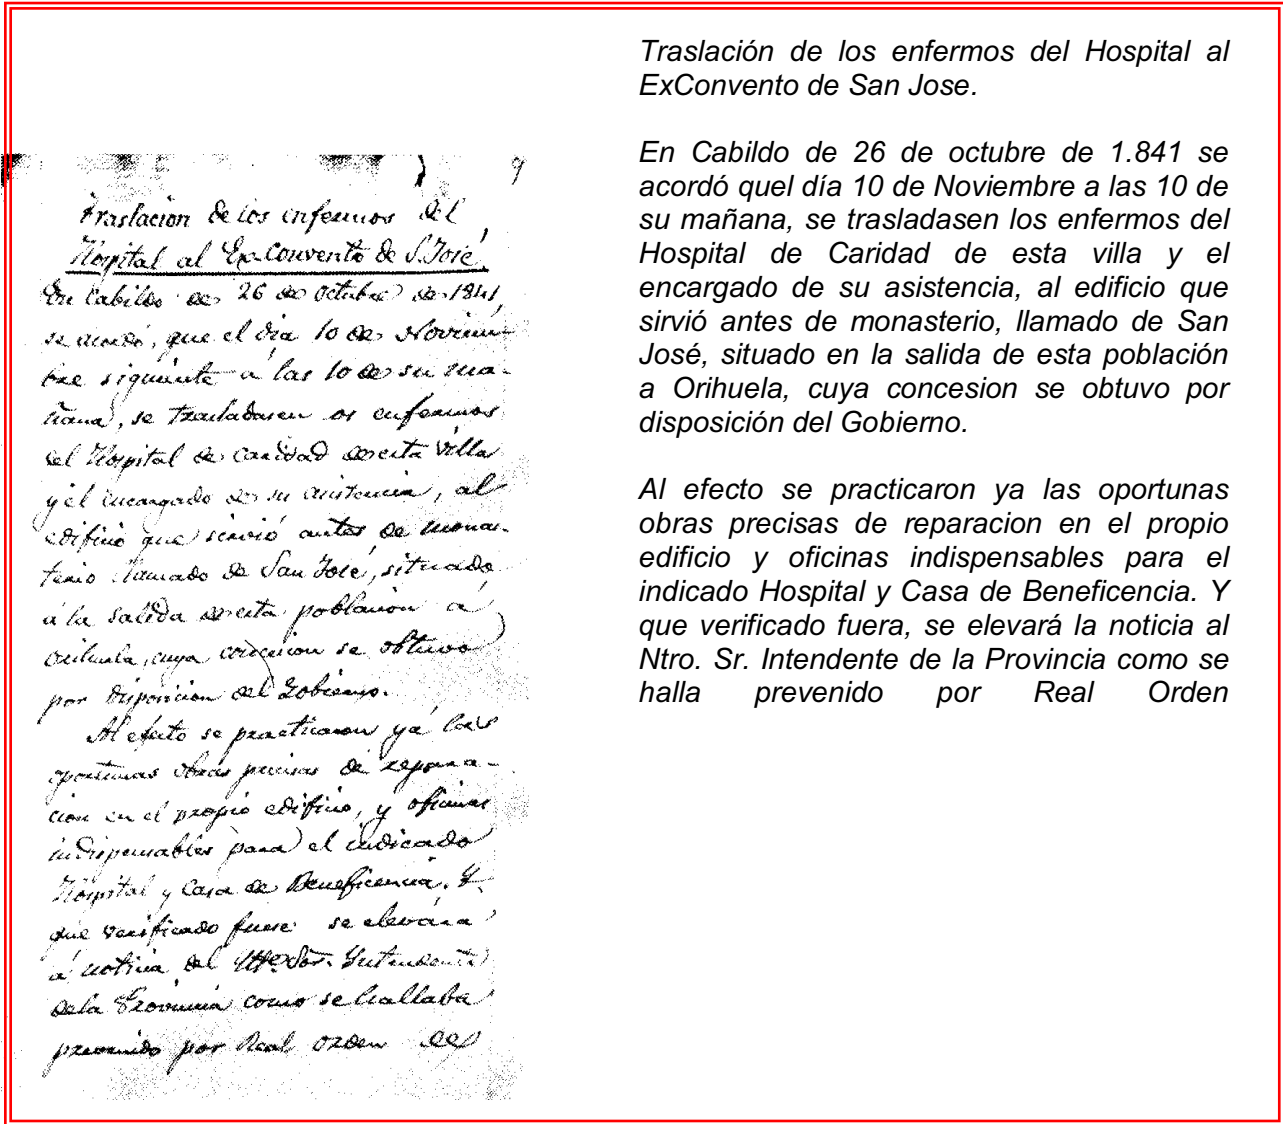 9
Traslacion de los enfermos del
Hospital al Ex-Convento de S. José.
En Cabildo de 26 de Octubre de 1841,
se acordó, que el dia 10 de Noviem-
bre siguiente á las 10 de su ma-
ñana, se trasladasen os enfermos
del Hospital de caridad de esta villa
y el encargado de su asistencia, al
edificio que sirvió antes de monas-
terio llamado de San José, situado
á la salida de esta poblacion a
orihuela, cuya concesion se obtuvo
por disposicion del Gobierno.
Al efecto se practicaron ya las
oportunas obras precisas de repara-
cion en el propio edificio, y oficinas
indispensables para el indicado
Hospital y Casa de Beneficencia. Y
que verificado fuese se elevára
á noticia del Sor. Intendente
de la Provincia como se hallaba
prevenido por Real orden de
Traslación de los enfermos del Hospital al
ExConvento de San Jose.
En Cabildo de 26 de octubre de 1.841 se
acordó quel día 10 de Noviembre a las 10 de
su mañana, se trasladasen los enfermos del
Hospital de Caridad de esta villa y el
encargado de su asistencia, al edificio que
sirvió antes de monasterio, llamado de San
José, situado en la salida de esta población
a Orihuela, cuya concesion se obtuvo por
disposición del Gobierno.
Al efecto se practicaron ya las oportunas
obras precisas de reparacion en el propio
edificio y oficinas indispensables para el
indicado Hospital y Casa de Beneficencia. Y
que verificado fuera, se elevará la noticia al
Ntro. Sr. Intendente de la Provincia como se
halla prevenido por Real Orden